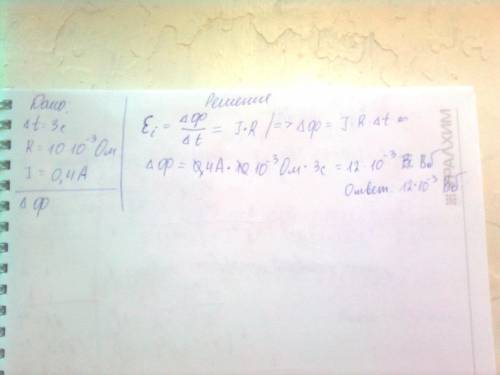 Дано
Δt = 3с
R = 10·10⁻³ Ом
I = 0,4 А
ΔФ
Решение
Ɛi = ΔФ/Δt = I·R /=> ΔФ = I·R·Δt =
ΔФ = 0,4А·10·10⁻³ Ом·3с = 12·10⁻³ Вб
Ответ: 12·10⁻³ Вб
УРАЛХИМ